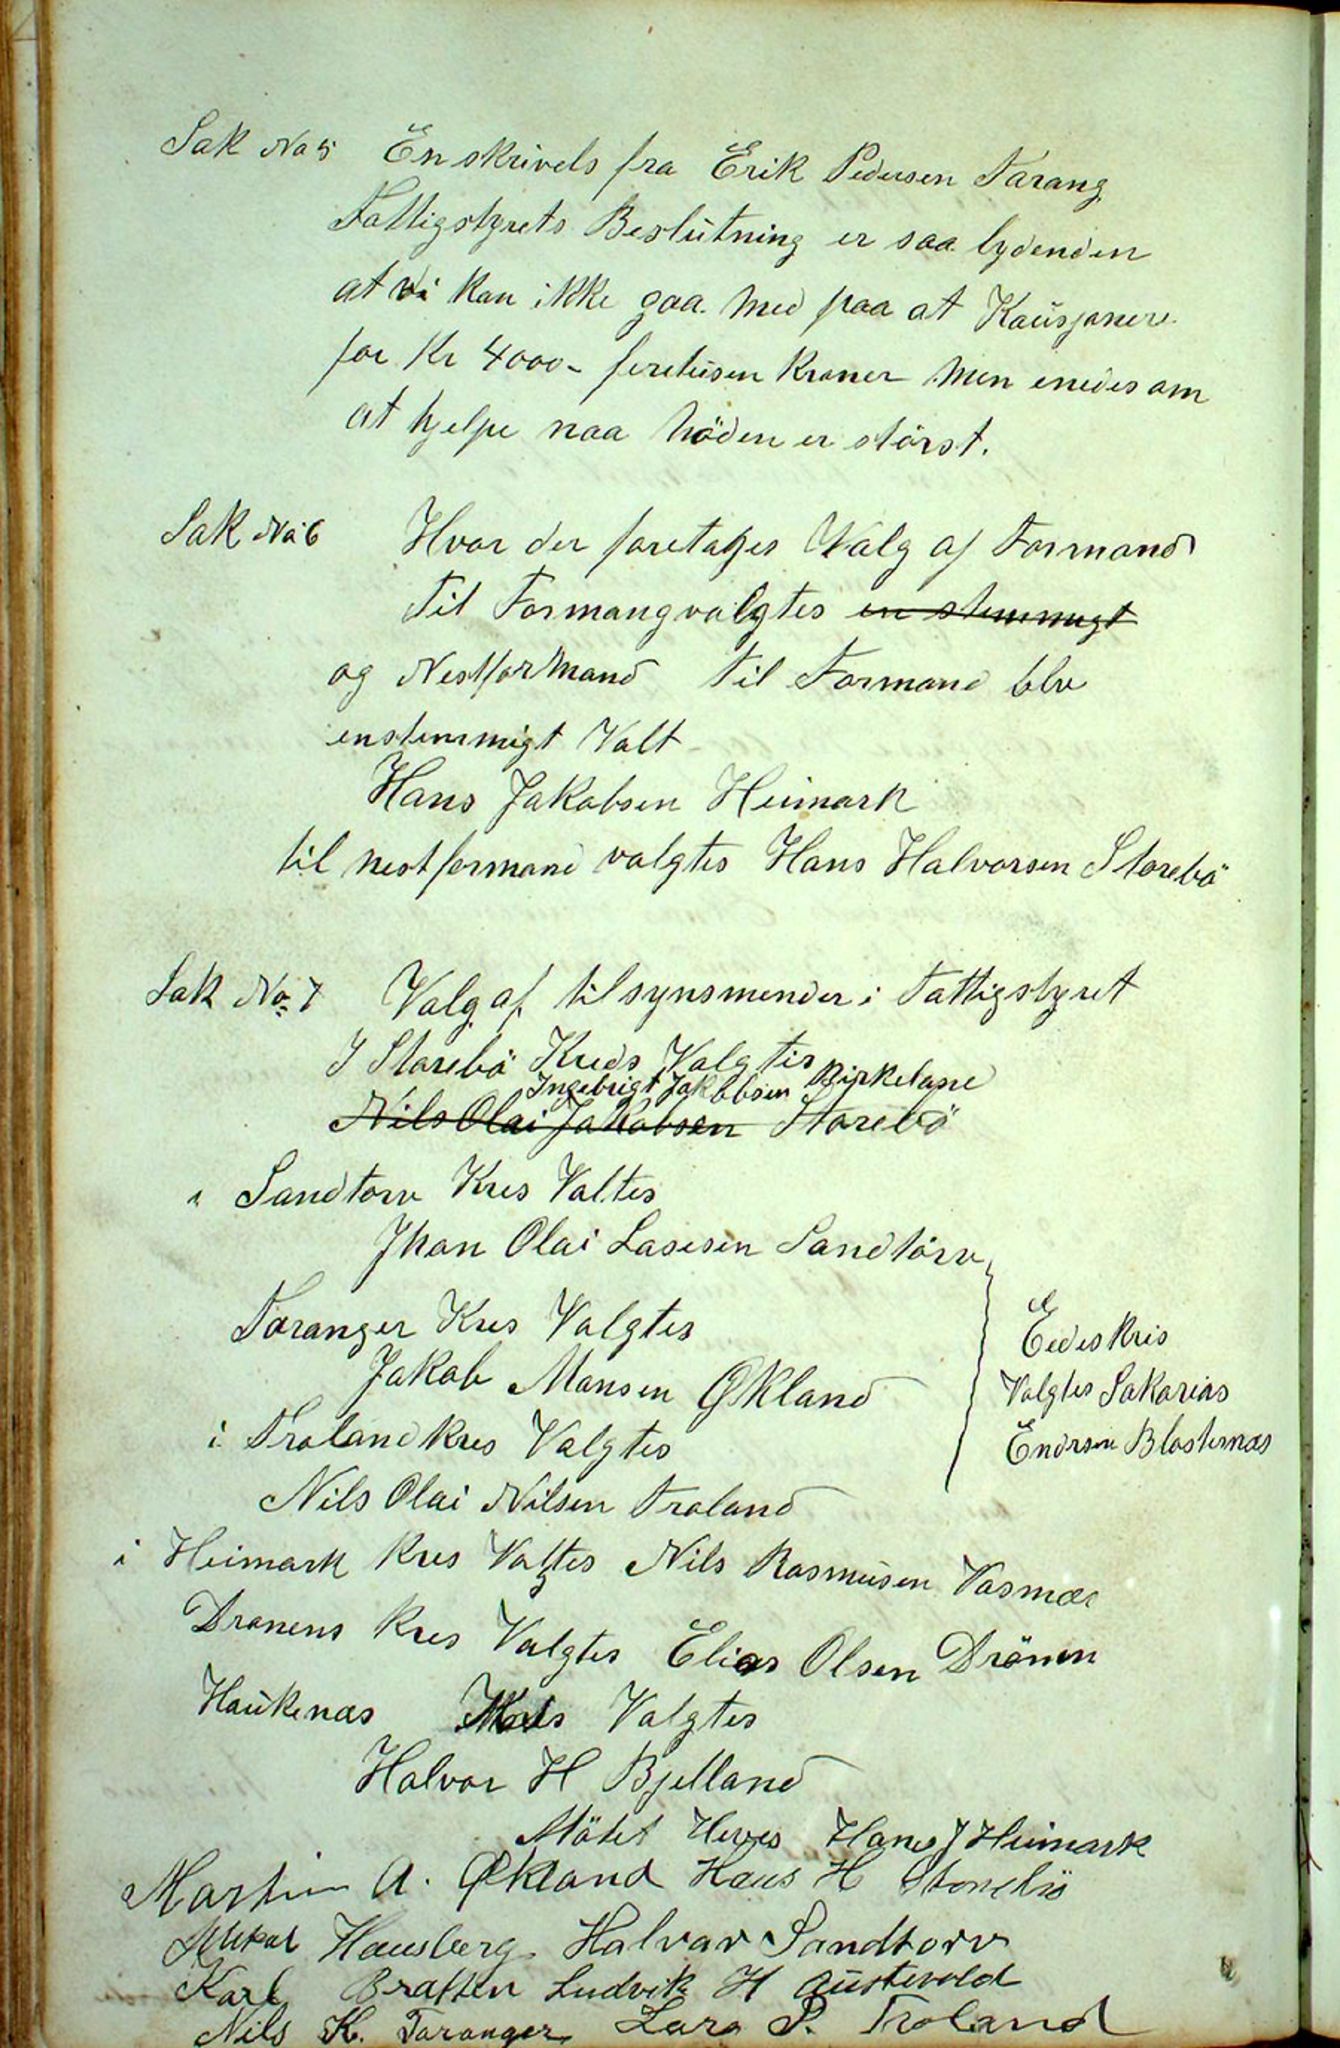 Sak No 5 En skrivels fra Erik Pedersen Tarang
Fattigstyrets Beslutning er saa lydenden
at vi kan ikke gaa med paa at Kausjonere
for Kr 4000- firetusen Kroner men enedes om
at hjelpe naa nöden er störst.
Sak No 6 Hvor der foretages Valg af Formand
Til Formangvalgtes en stemmigt
og Nestformand til Formand blv
enstemmigt Valt
Hans Jakobsen Heimark
til nestformand valgtes Hans Halvorsen Storebö
Sak No 7 Valg af tilsynsmender i Fattigstyret
I Storebö Kreds Valgtes
Ingebrigt Jakobsen Birkeland
Nils Olai Jakobsen Storebö
i Sandtorv Kres Valtes
Jhan Olai Lasesen Sandtorv
Toranger Kres Valgtes
Jakob Monsen Økland
Eedeskris
Valgtes Sakarias
Endrsen Blosternæs
i Troland kres Valgtes
Nils Olai Nilsen Troland
i Heimark Kres Valgtes Nils Rasmusen Vasnæs
Dronens Kres Valgtes Elias Olsen Drönen
Haukenæs Kres Valgtes
Halvor H Bjelland
Mötet Heves Hans J Heimark
Martin A. Økland Hans H Storebö
Mikal Hausberg Halvar Sandtorv
Karl Bratten Ludvik H Austevold
Nils K. Taranger Lars P. Troland